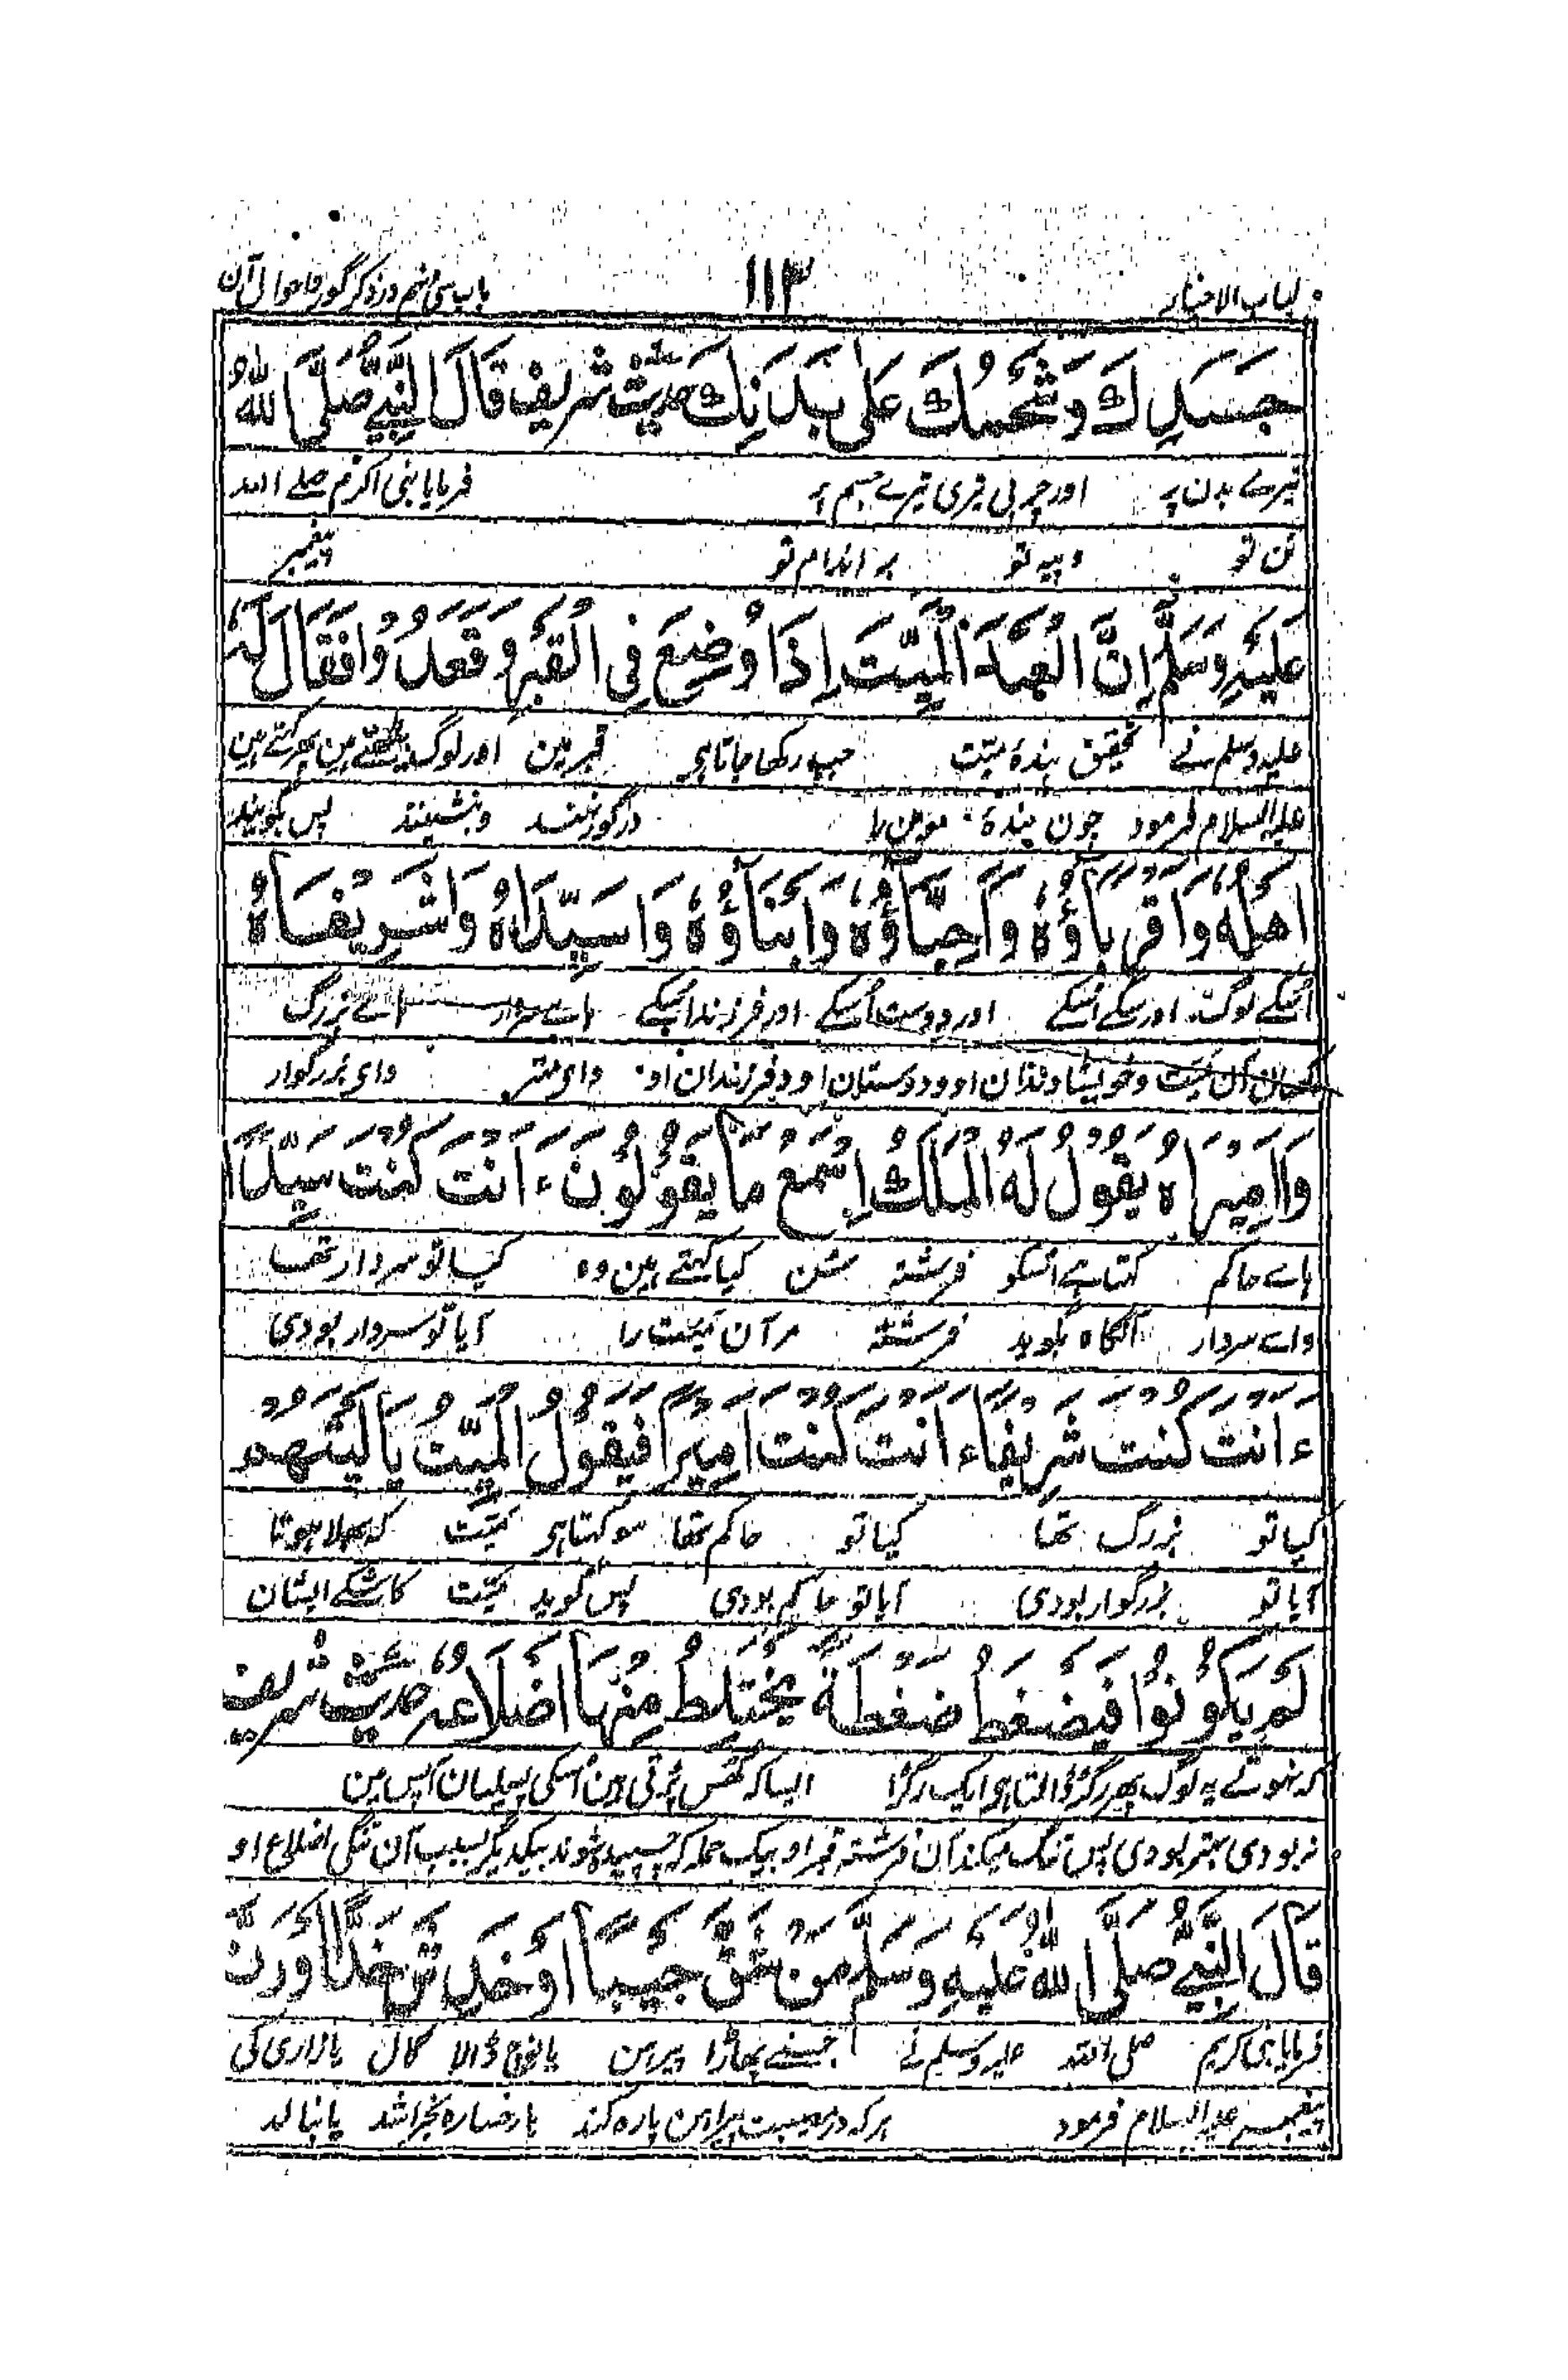 لباب الاخبار ۱۱۳ باب سی نهم در ذکر گور و احوال آن
جَسَدِكَ وَشَحْمُكَ عَلَى بَدَنِكَ حدیث شریف قَالَ النَّبِيُّ صَلَّى اللهُ
تیرے بدن پر اور چربی تیری تیرے جسم پر فرمایا نبی اکرم صلے اللہ
تن تو و پیه تو بر اندام تو پیغمبر
عَلَيْهِ وَسَلَّمَ اِنَّ الْعَبْدَ الْمَيِّتَ اِذَا وُضِعَ فِى الْقَبْرِ وَقَعَدُوْا فَقَالَ لَهٗ
علیہ وسلم نے تحقیق بندۂ میت جب رکھا جاتا ہی قبر مین اور لوگ بیٹھتے ہین پھر کہتے ہین
علیہ السلام فرمود چون بندۂ مومن را در گور نہند و بنشینند پس گویند
اَهْلُهٗ وَاَقْرِبَاؤُهٗ وَاَحِبَّاؤُهٗ وَاَبْنَاؤُهٗ وَاسَيِّدَاهُ وَاشَرِيْفَاهُ
اسکے لوگ اور سگے اسکے اور دوست اسکے اور فرزند اسکے اے سردار اے بزرگ
کسان آن میت و خویشاوندان او و دوستان او و فرزندان او وای مهتر وای بزرگوار
وَااَمِيْرَاهُ يَقُوْلُ لَهُ الْمَلَكُ اِسْمَعْ مَا يَقُوْلُوْنَ ءَاَنْتَ كُنْتَ سَيِّدًا
اے حاکم کہتا ہے اسکو فرشتہ سُن کیا کہتے ہین وہ کیا تو سردار تھا
واے سردار آنگاہ گوید فرشتہ مر آن میت را آیا تو سردار بودی
ءَاَنْتَ كُنْتَ شَرِيْفًا ءَاَنْتَ كُنْتَ اَمِيْرًا فَيَقُوْلُ الْمَيِّتُ يَا لَيْتَهُمْ
کیا تو بزرگ تھا کیا تو حاکم تھا سو کہتا ہی میت کہ بھلا ہوتا
آیا تو بزرگوار بودی آیا تو حاکم بودی پس گوید میت کاشکے ایشان
لَمْ يَكُوْنُوْا فَيَضْغَطُ ضَغْطَةً يَخْتَلِطُ مِنْهَا اَضْلَاعُهٗ حدیث شریف
کہ نہوتے یہ لوگ پھر رگڑ ڈالتا ہی ایک رگڑا ایسا کہ گھس پڑتی ہین اسکی پسلیان آپس مین
نبودی بهتر بودی پس تنگ میکند آن فرشتہ قبر او بیک حملہ کہ چسپیدہ شوند بیکدیگر بسبب آن تنگی اضلاع او
قَالَ النَّبِيُّ صَلَّى اللهُ عَلَيْهِ وَسَلَّمَ مَنْ شَقَّ جَيْبًا اَوْ خَدَشَ خَدًّا اَوْ رَنَّ
فرمایا نبی کریم صلی اللہ علیہ وسلم نے جسنے پھاڑا پیرہن یا نوچ ڈالا گال یا زاری کی
پیغمبر علیہ السلام فرمود ہر کہ در مصیبت پیراہن پارہ کند یا رخسارہ بخراشد یا بنالد